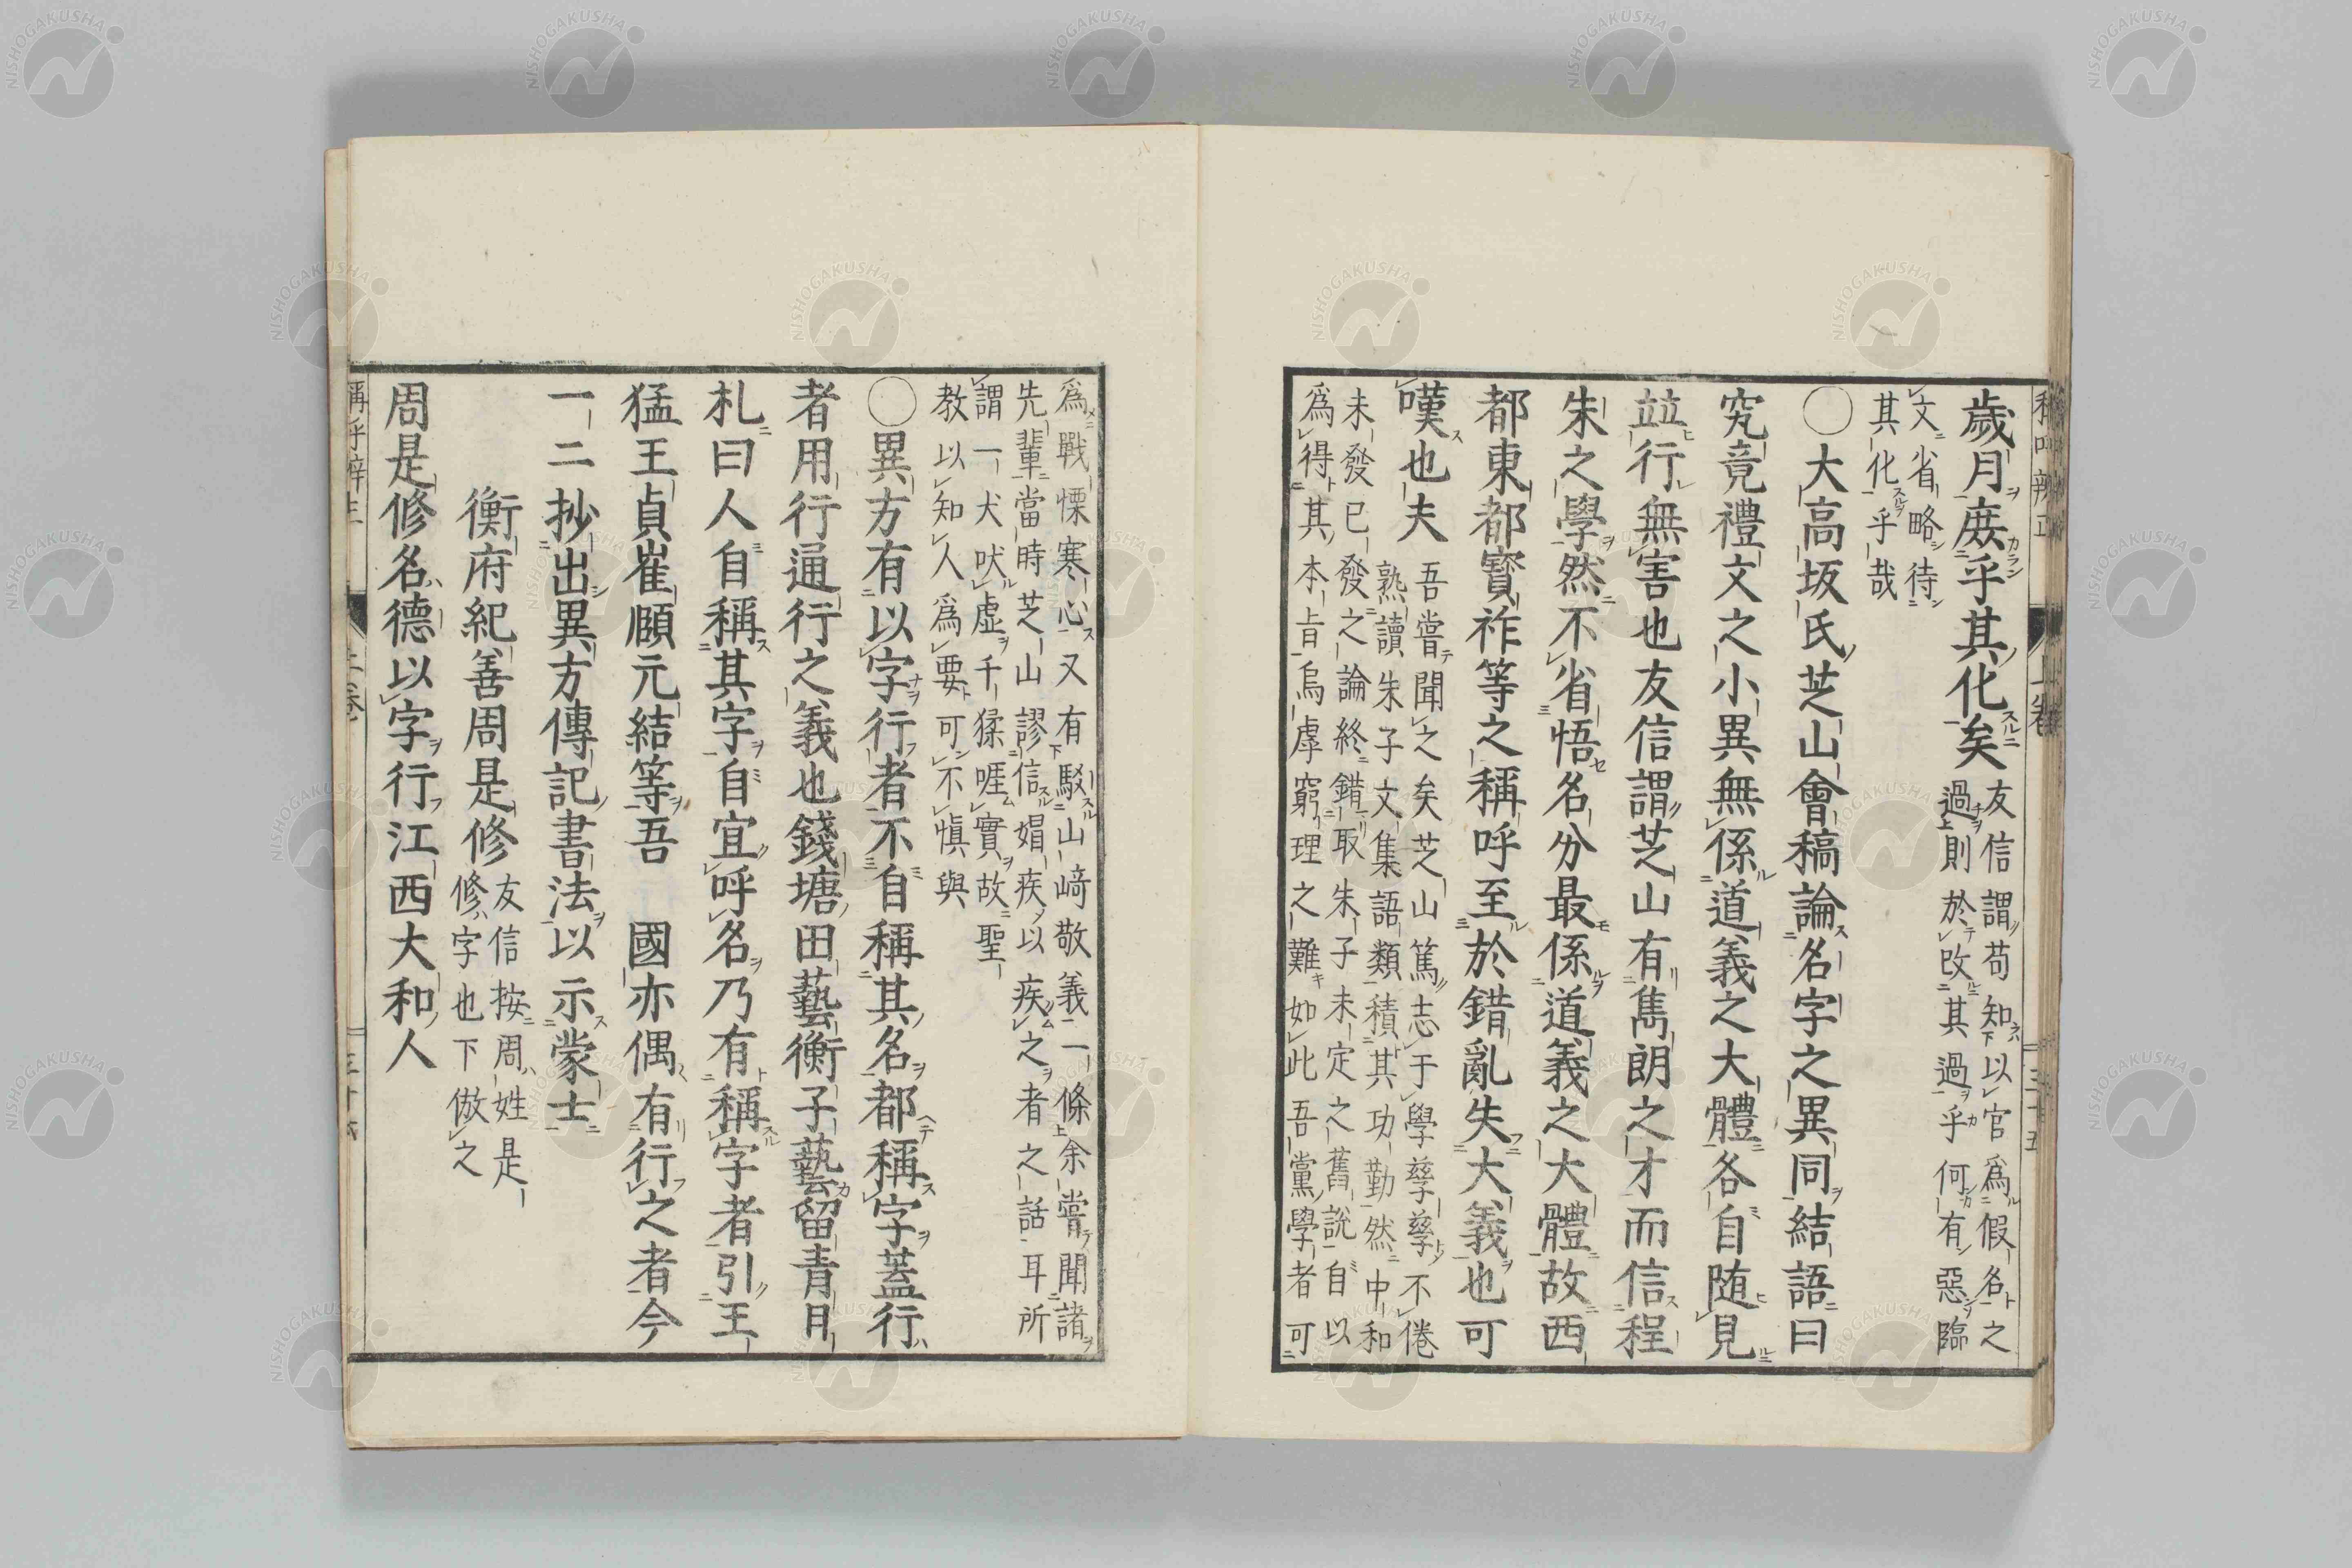 歲月庻乎其化矣
友信謂苟知以官爲假名之
過則於改其過乎何有惡臨
文省略待
其化乎哉
○大高坂氏芝山會稿論名字之異同結語曰
究竟禮文之小異無係道義之大體各自随見
竝行無害也友信謂芝山有雋朗之才而信程
朱之學然不省悟名分最係道義之大體故西
都東都寳祚等之稱呼至於錯亂失大義也可
嘆也夫
吾嘗聞之矣芝山篤志于學孳孳不倦
熟讀朱子文集語類積其功勤然中和
未發已發之論終錯取朱子未定之舊說自以
爲得其本旨烏虖窮理之難如此吾黨學者可
爲戰慄寒心又有駁山﨑敬義一條余嘗聞諸
先輩當時芝山謬信娟疾以疾之者之話耳所
謂一犬吠虛千猱啀實故聖
教以知人爲要可不愼與
○異方有以字行者不自稱其名都稱字蓋行
者用行通行之義也錢塘田藝衡子藝留青日
札曰人自稱其字自宜呼名乃有稱字者引王
猛王貞崔頤元結等吾 國亦偶有行之者今
一二抄出異方傳記書法以示蒙士
衡府紀善周是修
友信按周姓是
修字也下倣之
周是修名德以字行江西大和人
稱呼辨正
上卷
三十五